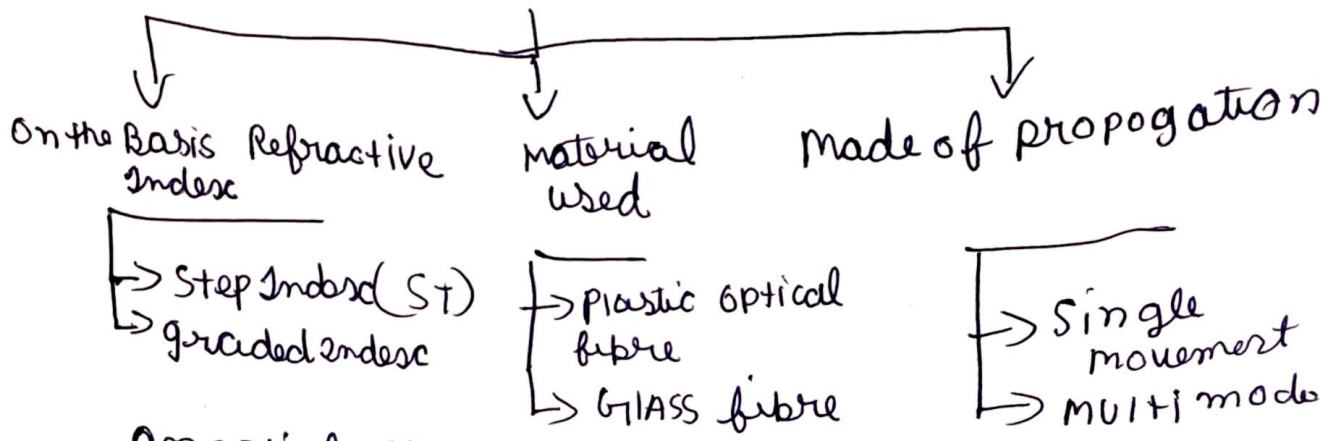 On the Basis Refractive Index
Step Index (ST)
graded index
Material used
Plastic optical fibre
GlASS fibre
Made of propogation
Single movement
Multi mode